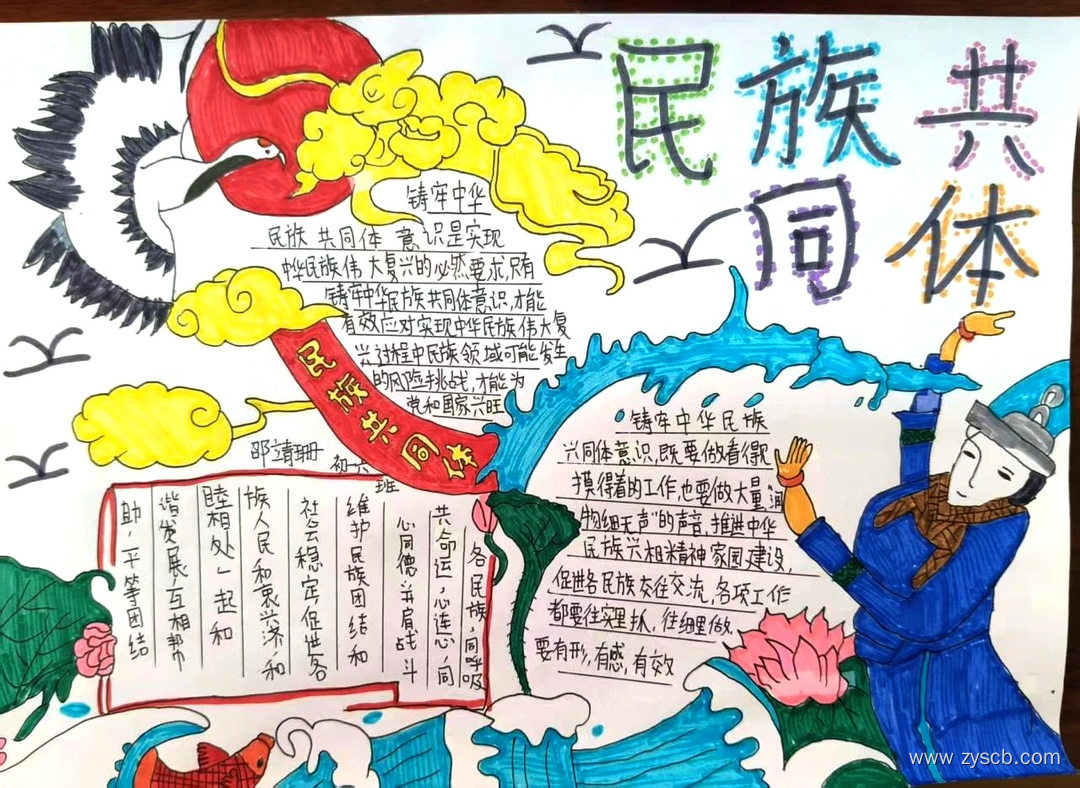 民族共
同体
铸牢中华
民族共同体意识是实现
中华民族伟大复兴的必然要求,只有
铸牢中华民族共同体意识,才能
有效应对实现中华民族伟大复
兴过程中民族领域可能发生
的风险挑战,才能为
党和国家兴旺
民族共同体
邵靖珊
初一六
班
铸牢中华民族
兴同体意识,既要做看得
摸得着的工作,也要做大量润
物细无声"的声音,推进中华
民族兴相精神家园建设,
促进各民族交往交流,各项工作
都要往实里抓,往细里做
要有形,有感,有效
各民族,同呼吸
共命运,心连心,同
心同德,并肩战斗
维护民族团结和
社会稳定促进各
族人民和衷兴济,和
睦相处,一起和
谐发展,互相帮
助,平等团结
www.zyscb.com